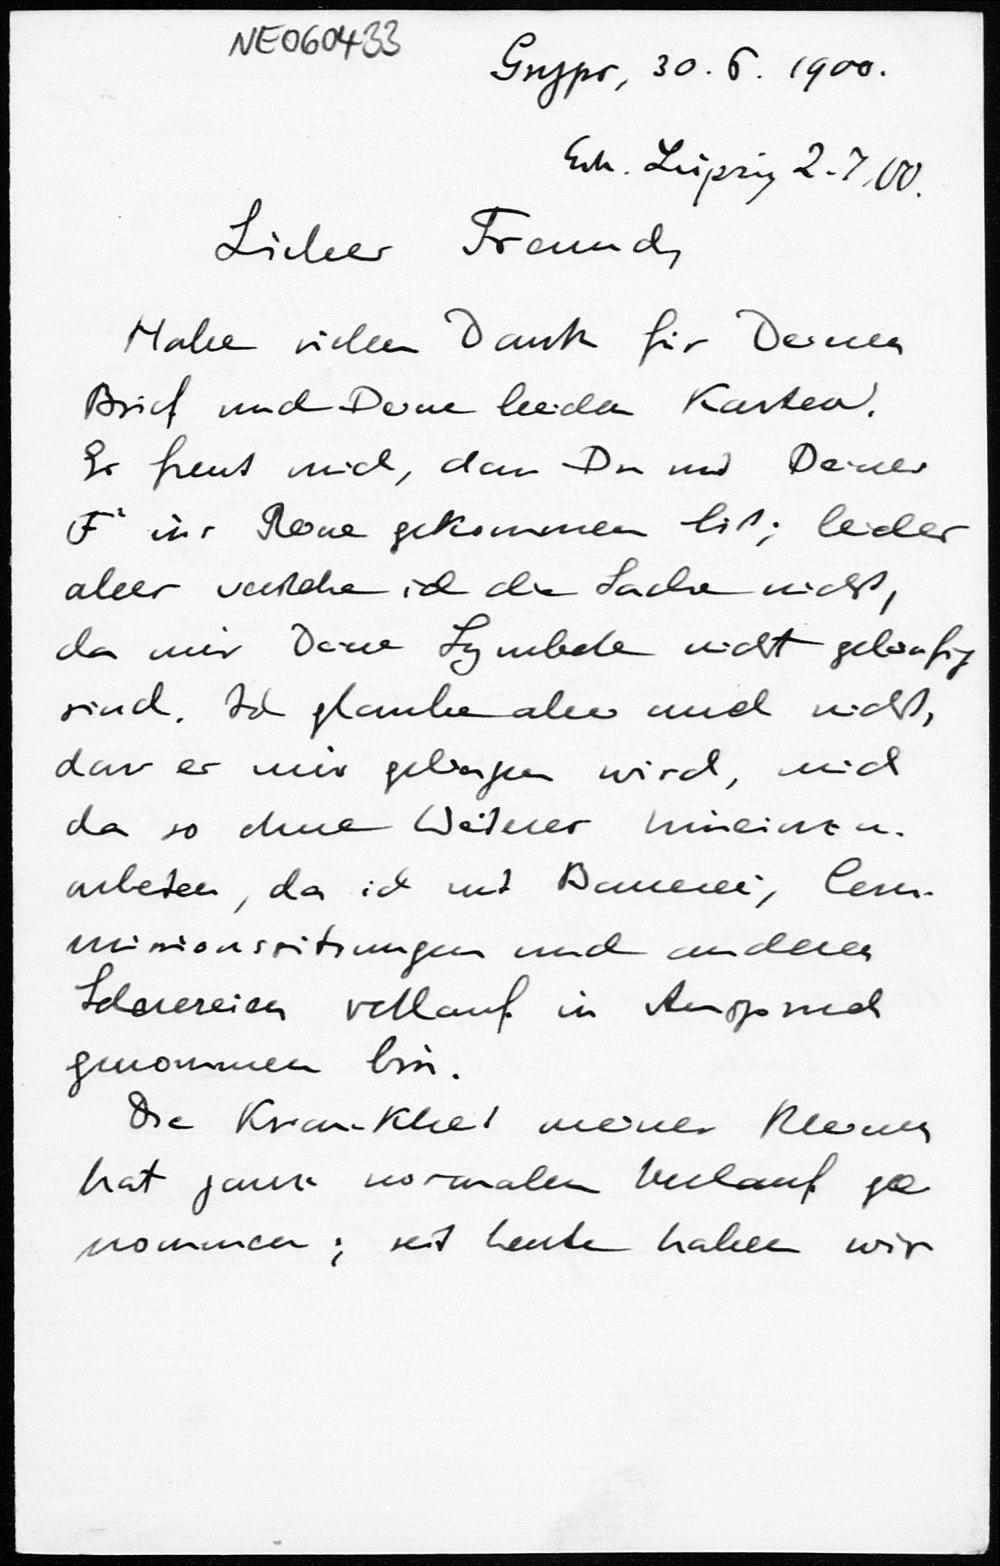 NE060433
Gryps, 30. 6. 1900.
Erh. Leipzig 2.7.00.
Lieber Freund,
Habe vielen Dank für Deinen
Brief und Deine beiden Karten.
Es freut mich, dass Du mit Deiner
F² ins Reine gekommen bist; leider
aber verstehe ich die Sache nicht,
da mir Deine Symbole nicht geläufig
sind. Ich glaube aber auch nicht,
dass es mir gelingen wird, mich
da so ohne Weiteres hineinzu-
arbeiten, da ich mit Bauerei, Com-
missionssitzungen und anderen
Scherereien vollauf in Anspruch
genommen bin.
Die Krankheit meiner Kleinen
hat ganz normalen Verlauf ge
nommen; seit heute haben wir